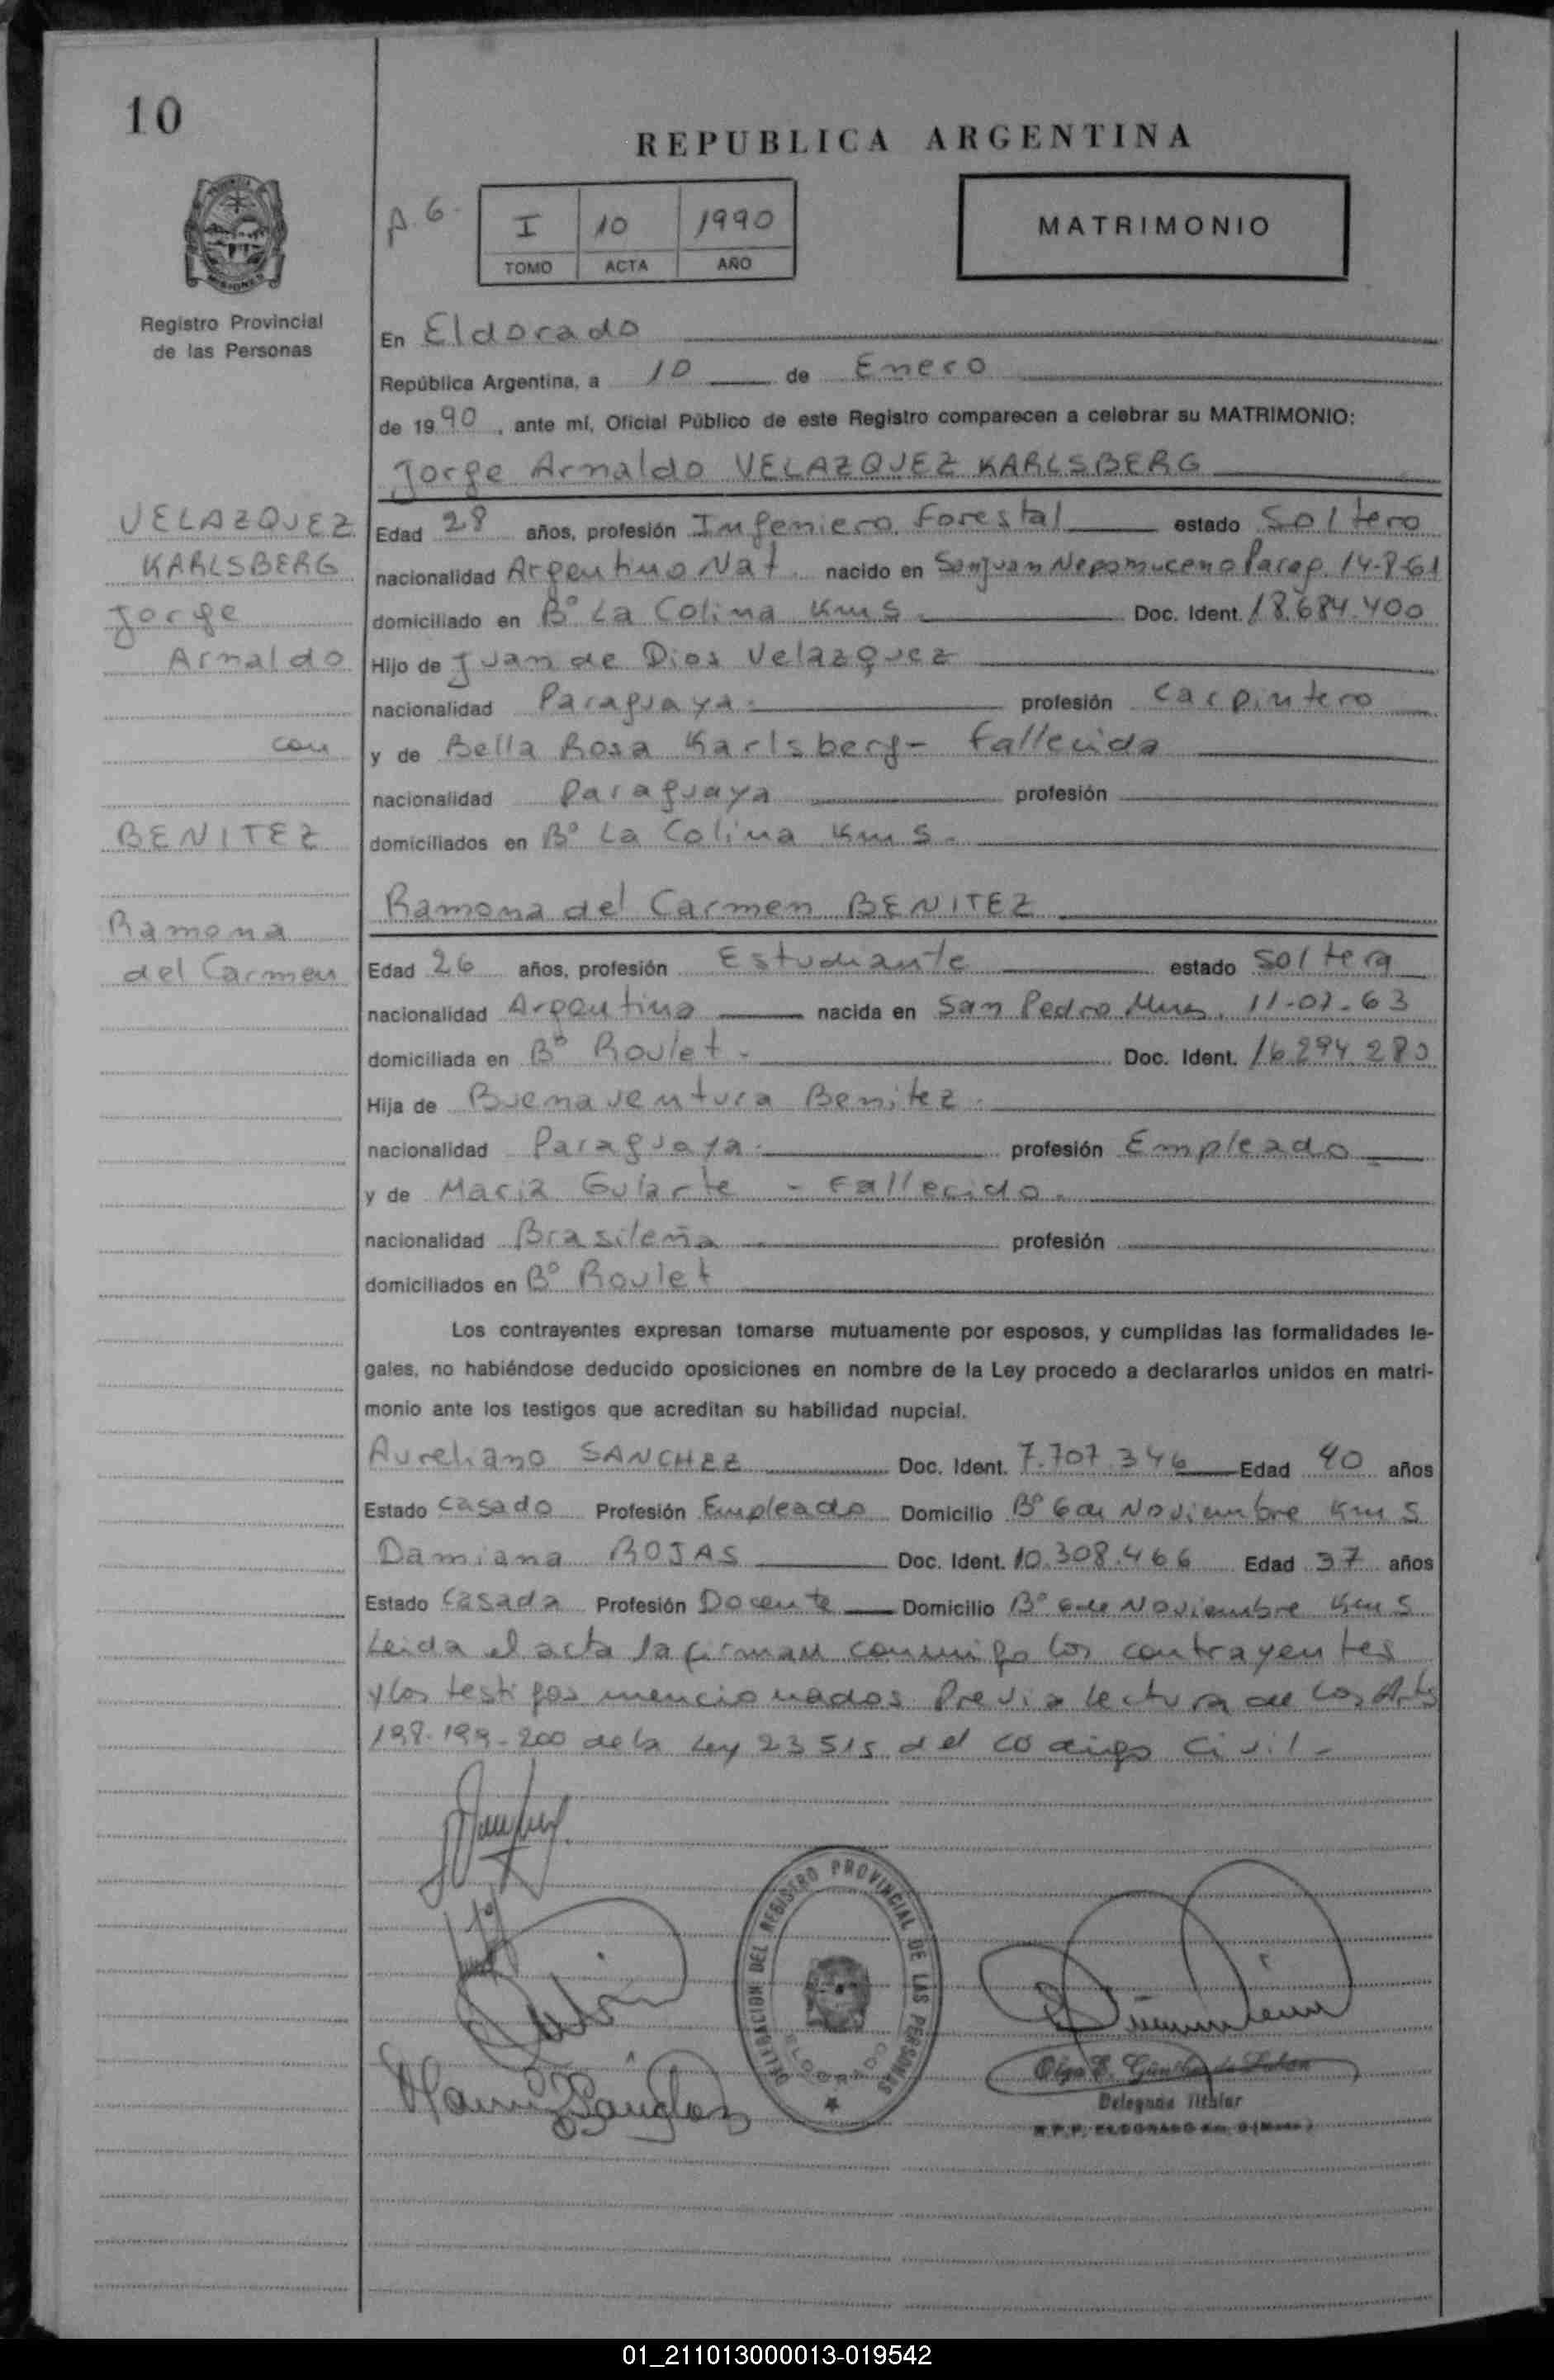 10
REPUBLICA ARGENTINA
I 10 1990
TOMO ACTA AÑO
MATRIMONIO
Registro Provincial
de las Personas
En Eldorado
República Argentina, a 10 de Enero
de 1990, ante mí, Oficial Público de este Registro comparecen a celebrar su MATRIMONIO:
Jorge Arnaldo VELAZQUEZ KARLSBERG
VELAZQUEZ
KARLSBERG
Jorge
Arnaldo
con
BENITEZ
Ramona
del Carmen
Edad 28 años, profesión Ingeniero Forestal estado Soltero
nacionalidad Argentino Nat. nacido en San Juan Nepomuceno Parag. 14-8-61
domiciliado en B° La Colina Km 5.- Doc. Ident. 18.684.400
Hijo de Juan de Dios Velazquez
nacionalidad Paraguaya.- profesión Carpintero
y de Bella Rosa Karlsberg - Fallecida
nacionalidad Paraguaya profesión
domiciliados en B° La Colina Km 5.-
Ramona del Carmen BENITEZ
Edad 26 años, profesión Estudiante estado Soltera
nacionalidad Argentina nacida en San Pedro Mnes. 11-07-63
domiciliada en B° Roulet.- Doc. Ident. 16.294.280
Hija de Buenaventura Benitez.
nacionalidad Paraguaya.- profesión Empleado
y de Maria Gularte - Fallecido.
nacionalidad Brasileña profesión
domiciliados en B° Roulet
Los contrayentes expresan tomarse mutuamente por esposos, y cumplidas las formalidades le-
gales, no habiéndose deducido oposiciones en nombre de la Ley procedo a declararlos unidos en matri-
monio ante los testigos que acreditan su habilidad nupcial.
Aureliano SANCHEZ Doc. Ident. 7.707.346 Edad 40 años
Estado Casado Profesión Empleado Domicilio B° 6 de Noviembre Km 5
Damiana ROJAS Doc. Ident. 10.308.466 Edad 37 años
Estado Casada Profesión Docente Domicilio B° 6 de Noviembre Km 5
Leida el acta la firman conmigo los contrayentes
y los testigos mencionados Previa lectura de los Arts
198-199-200 de la Ley 23515 del codigo Civil-
DELEGACION DEL REGISTRO PROVINCIAL DE LAS PERSONAS
ELDORADO
Olga E. Günther de
Delegada Titular
R.P.P. ELDORADO Km.
01_211013000013-019542